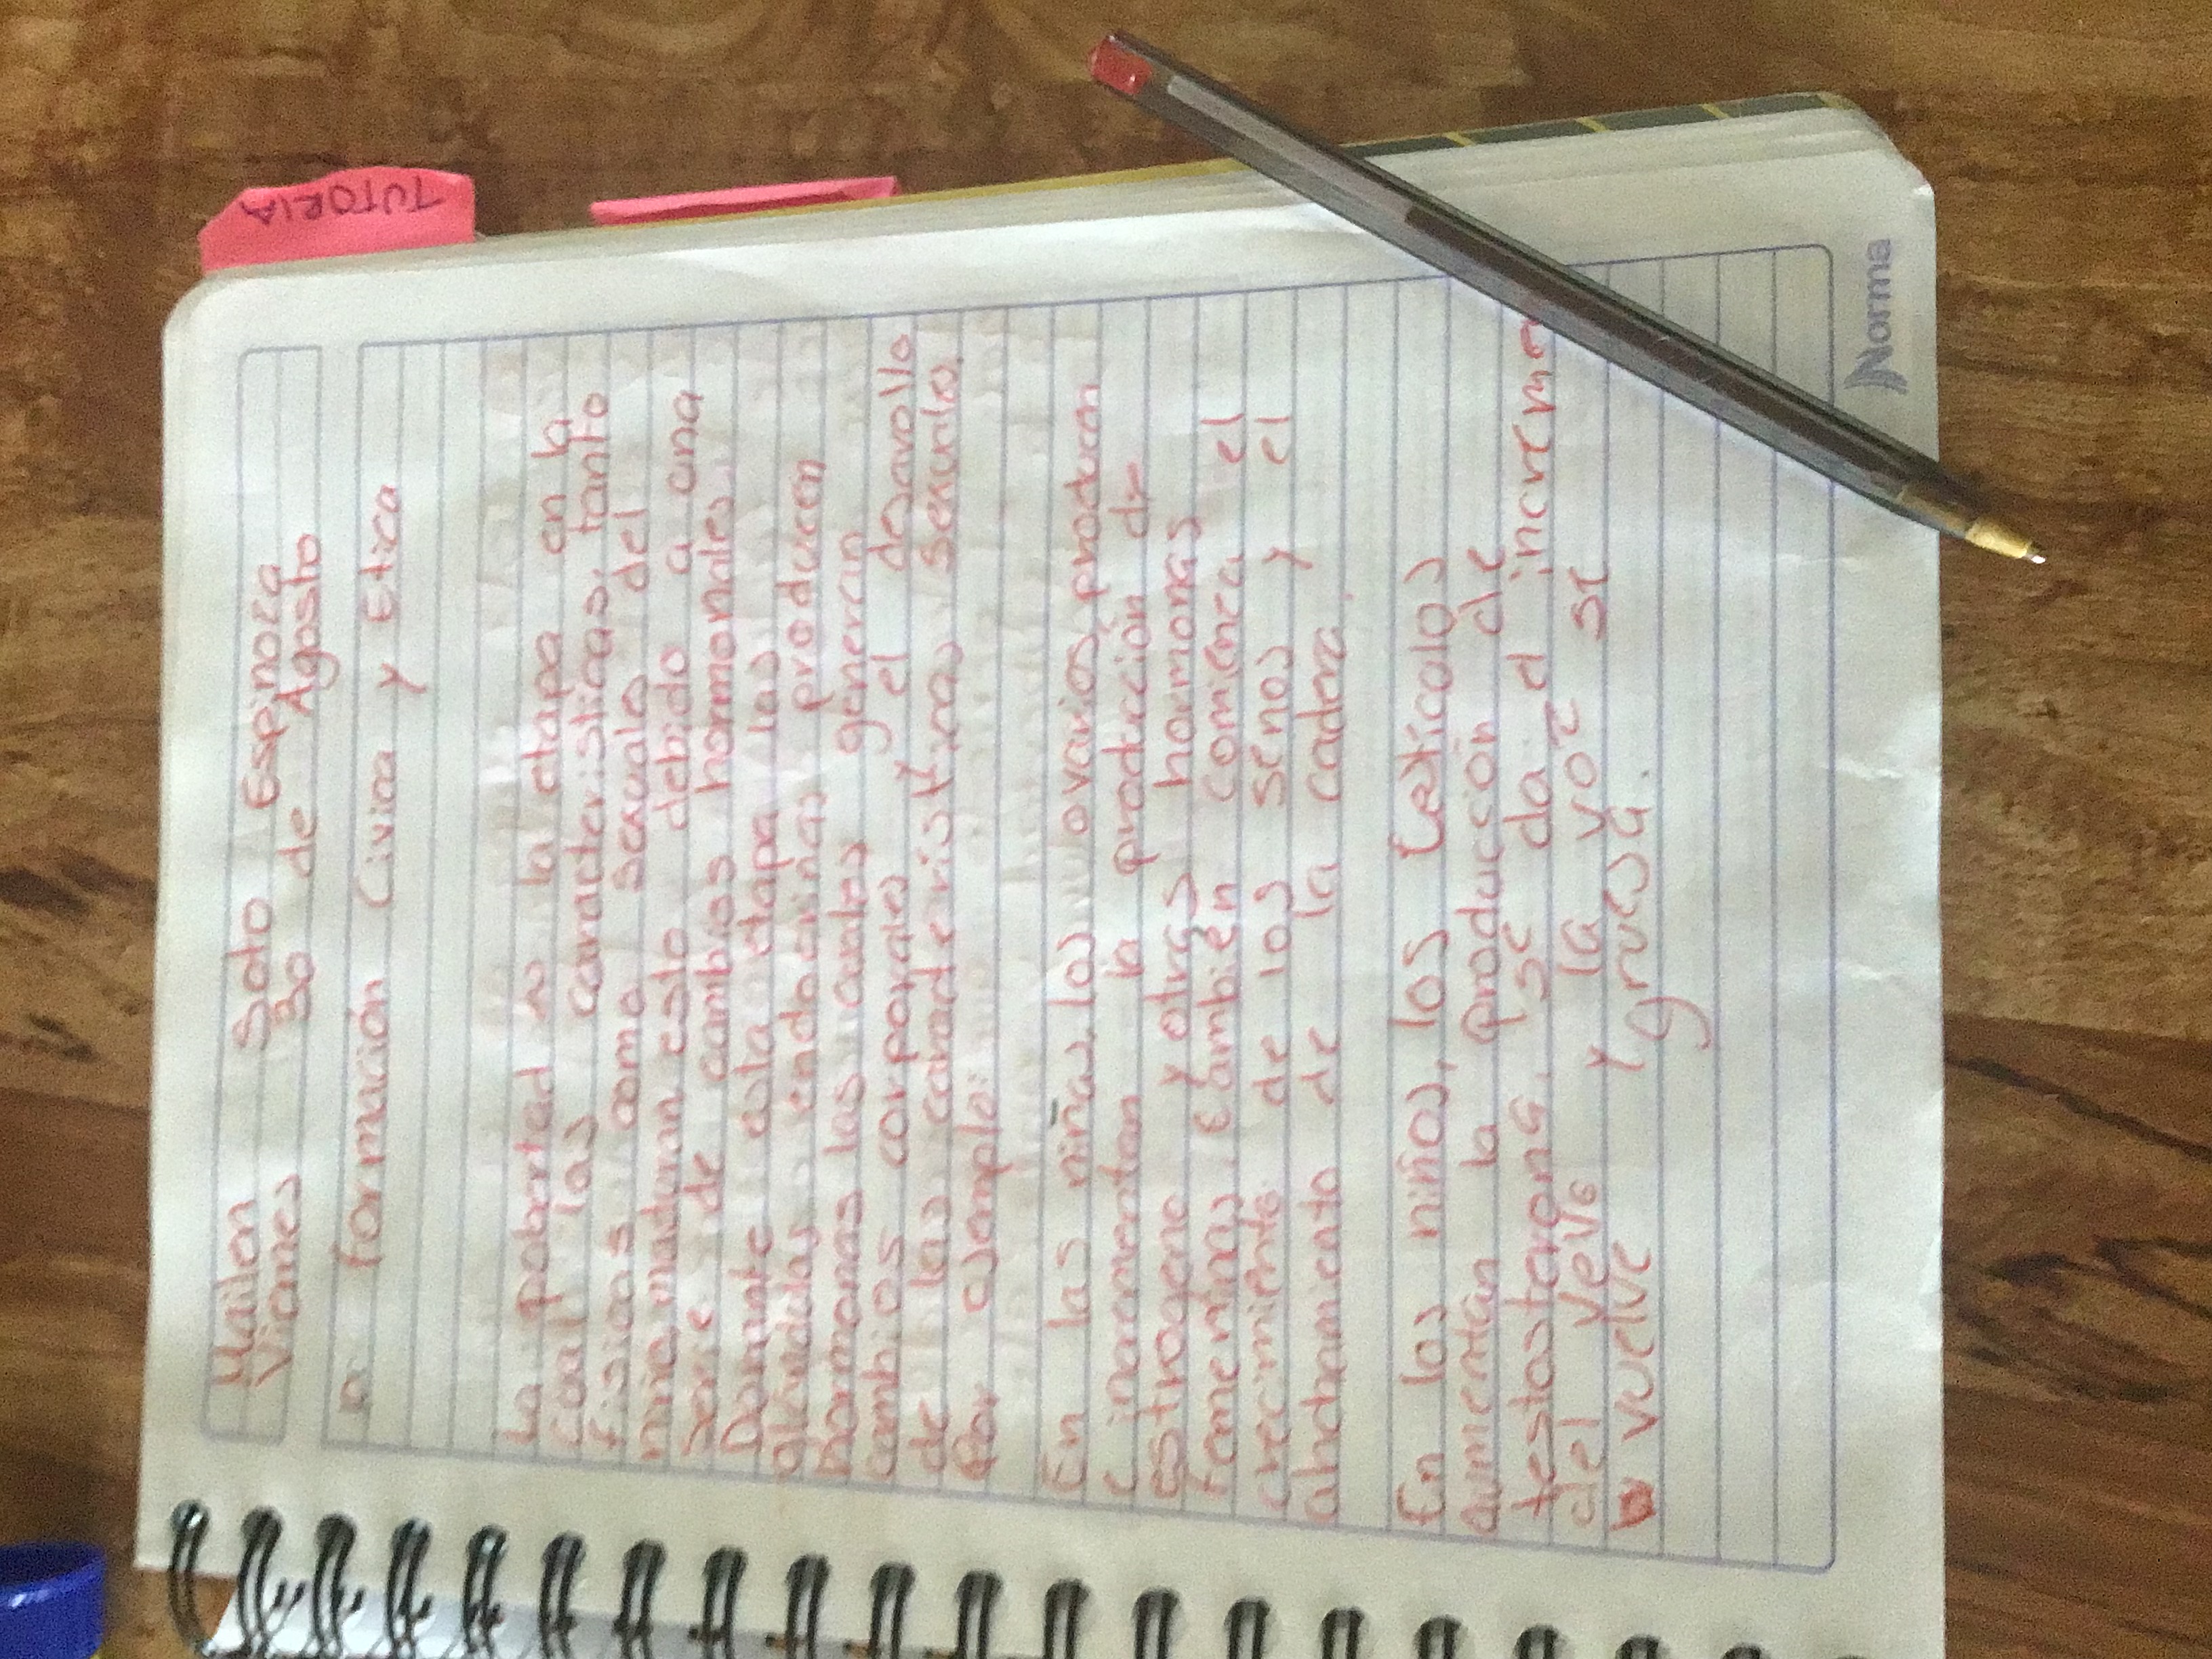 Mailen Soto Espinoza
Viernes 30 de Agosto
Formación Civica y Etica
La pubertad es la etapa en la
cual las caracteristicas, tanto
fisicas como sexuales del
niño, maduran esto debido a una
serie de cambios hormonales.
Durante esta etapa las
glandulas endocrinas producen
hormonas las cuales generan
cambios corporales y el desarollo
de las caracteristicas sexuales,
Por ejemplo:
En las niñas, los ovarios, producen
(incrementan la producción de
estrogeno y otras hormonas
femeninas, tambien comienza el
crecimiento de los senos y el
anchamiento de la cadera.
En los niños, los testículos
aumentan la producción de
testosterona, se da el increme
del vello la voz se
vuelve y gruesa.
TUTORIA
Norma